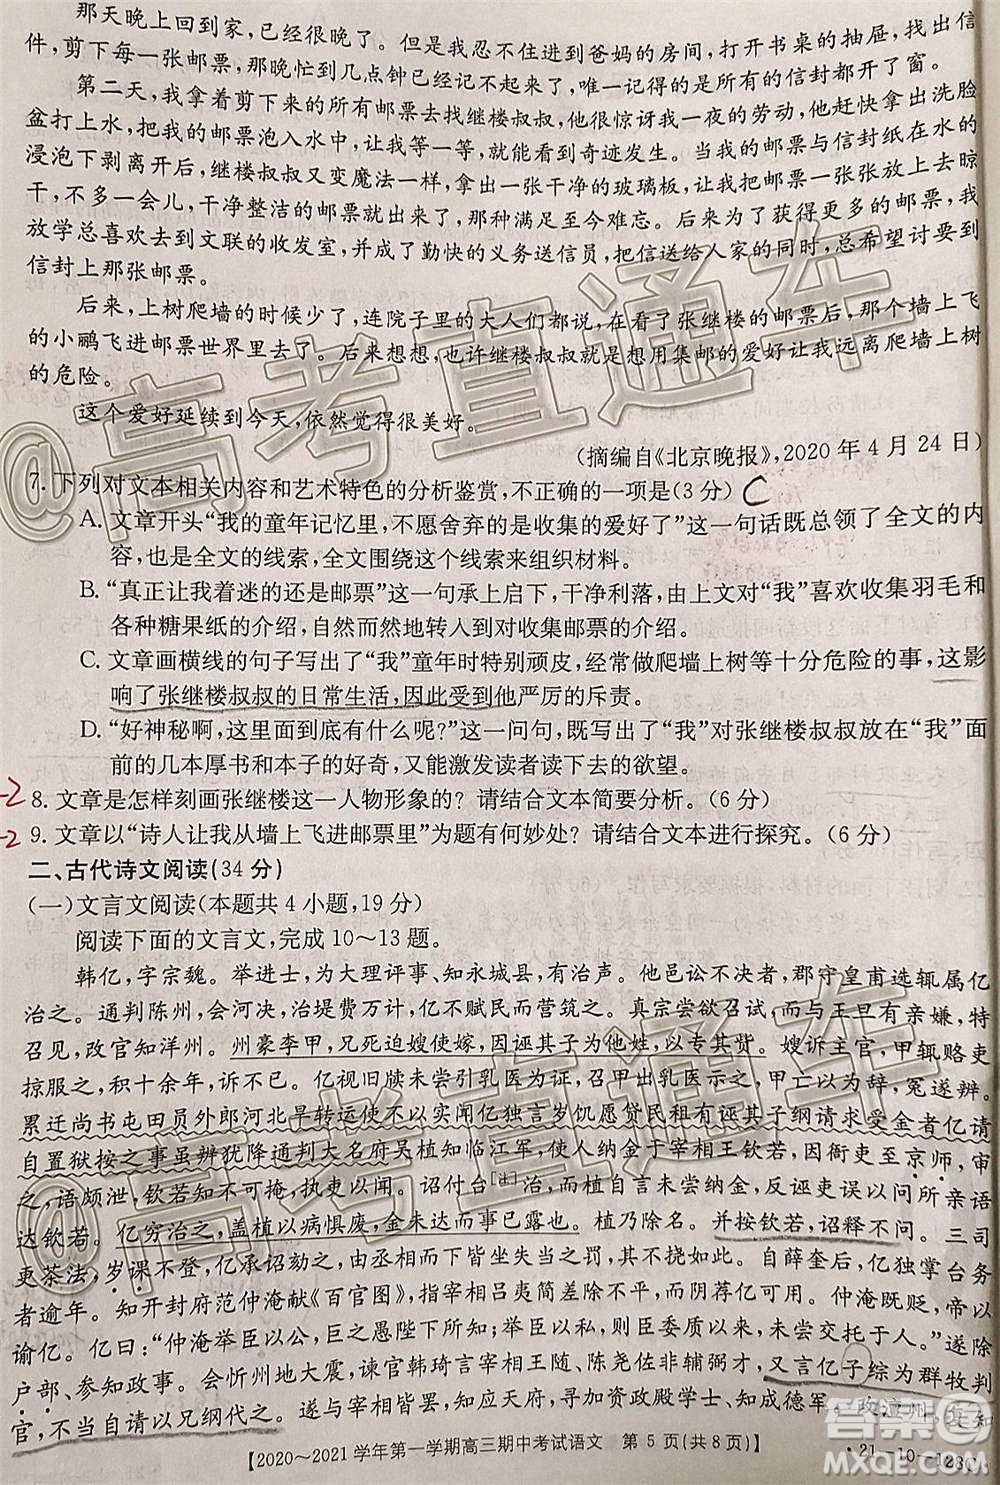 那天晚上回到家，已经很晚了。但是我忍不住进到爸妈的房间，打开书桌的抽屉，取出信
件，剪下每一张邮票，那晚忙到几点钟已经记不起来了，唯一记得的是所有的信封都开了窗。
第二天，我拿着剪下来的所有邮票找继楼叔叔，他很惊讶我一夜的劳动，他赶快拿出洗脸
盆打上水，把我的邮票泡入水中，让我等一等，就能看到奇迹发生。当我的邮票与信封纸在水的
浸泡下剥离开后，继楼叔叔又变魔法一样，拿出一张干净的玻璃板，让我把邮票一张张放上去晾
干，不多一会儿，干净整洁的邮票就出现了，那种满足至今难忘。后来为了获得更多的邮票，我
放学总喜欢去到文联的收发室，并成了勤快的义务送信员，把信送给人家的同时，总希望讨要到
信封上那张邮票。
后来，上树爬墙的时候少了，连院子里的大人们都说，在看了张继楼的邮票后，那个墙上飞
的小鹏飞进邮票世界里去了。后来想想，也许继楼叔叔就是想用集邮的爱好让我远离爬墙上树
的危险。
这个爱好延续到今天，依然觉得很美好。
（摘编自《北京晚报》，2020年4月24日）
7. 下列对文本相关内容和艺术特色的分析鉴赏，不正确的一项是（3分） C
A. 文章开头“我的童年记忆里，不愿舍弃的是收集的爱好了”这一句话既总领了全文的内
容，也是全文的线索，全文围绕这个线索来组织材料。
B. “真正让我着迷的还是邮票”，干净利落，由上文中对“我”喜欢收集羽毛和
各种糖果纸的介绍，自然而然地转到对收集邮票的介绍。
C. 文章画横线的句子写出了“我”童年时特别顽皮，经常做爬墙上树等十分危险的事，这影
响了张继楼叔叔的日常生活，因此受到他严厉的斥责。
D. “好神秘啊，这里面到底有什么呢？”这一问句，既写出了“我”对张继楼叔叔放在“我”面
前的几本厚书和本子的好奇，又能激发读者读下去的欲望。
-2 8. 文章是怎样刻画张继楼这一人物形象的？请结合文本简要分析。（6分）
-2 9. 文章以“诗人让我从墙上飞进邮票里”为题有何妙处？请结合文本进行探究。（6分）
二、古代诗文阅读（34分）
（一）文言文阅读（本题共4小题，19分）
阅读下面的文言文，完成10～13题。
韩亿，字宗魏。举进士，为大理评事、知永城县，有治声。他邑讼不决者，郡守皇甫选辄属亿
治之。通判陈州，会河决，治堤费万计，亿不赋民而营筑之。真宗尝欲召试，而与王旦有亲嫌，特
召见，改官知洋州。州豪李甲，兄死迫嫂使嫁，因诬其子为他姓，以专其赀。嫂诉于官，甲辄赂吏
掠服之，积十余年，诉不已。亿视旧牍未尝引乳医为证，召甲出乳医示之，甲亡以为辞，冤遂辨。
累迁尚书屯田员外郎河北早转运使不以实闻亿独言岁饥愿贷民租有诬其子纲请求受金者亿请
自置狱按之事虽辨犹降通判大名府吴植知临江军，使人纳金于宰相王钦若，因牙吏至京师，审
之，语颇泄，钦若知不可掩，执吏以闻。诏付台[注]治，而植自言未尝纳金，反诬吏误以问所亲语
达钦若。亿穷治之，盖植以病惧废，金未达而事已露也。植乃除名。并按钦若，诏释不问。三司
更茶法，岁课不登，亿承诏劾之，由丞相而下皆坐失当之罚，其不挠如此。自薛奎后，亿独掌台务
者逾年。知开封府范仲淹献《百官图》，指宰相吕夷简差除不平，而阴荐亿可用。仲淹既贬，帝以
谕亿。亿曰：“仲淹举臣以公，臣之愚陛下所知；举臣以私，则臣委质以来，未尝交托于人。”遂除
户部、参知政事。会忻州地大震，谏官韩琦言宰相王随、陈尧佐非辅弼才，又言亿子综为群牧判
官，不当自请以兄纲代之。遂与宰相皆罢，知应天府，寻加资政殿学士、知成德军，改澶州，复知
【2020～2021学年第一学期高三期中考试语文 第5页（共8页）】
·21-10-123C·
@高考直通车
@高考直通车
答案圈